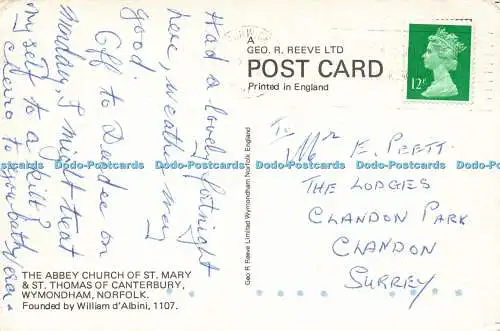 Had a lovely fortnight
here, weather very
good.
Off to Dundee on
Monday, I might treat
myself to a kilt?
cheerio to you both, Vera.
THE ABBEY CHURCH OF ST. MARY
& ST. THOMAS OF CANTERBURY,
WYMONDHAM, NORFOLK.
Founded by William d'Albini, 1107.
A
GEO. R. REEVE LTD
POST CARD
Printed in England
Geo R Reeve Limited Wymondham Norfolk England
12P
To
Mr E. PRETT.
THE LODGES
CLANDON PARK
CLANDON
SURREY
Dodo-Postcards Dodo-Postcards Dodo-Postcards Dodo-Postcards Dodo-Postcards Dodo-Postcards